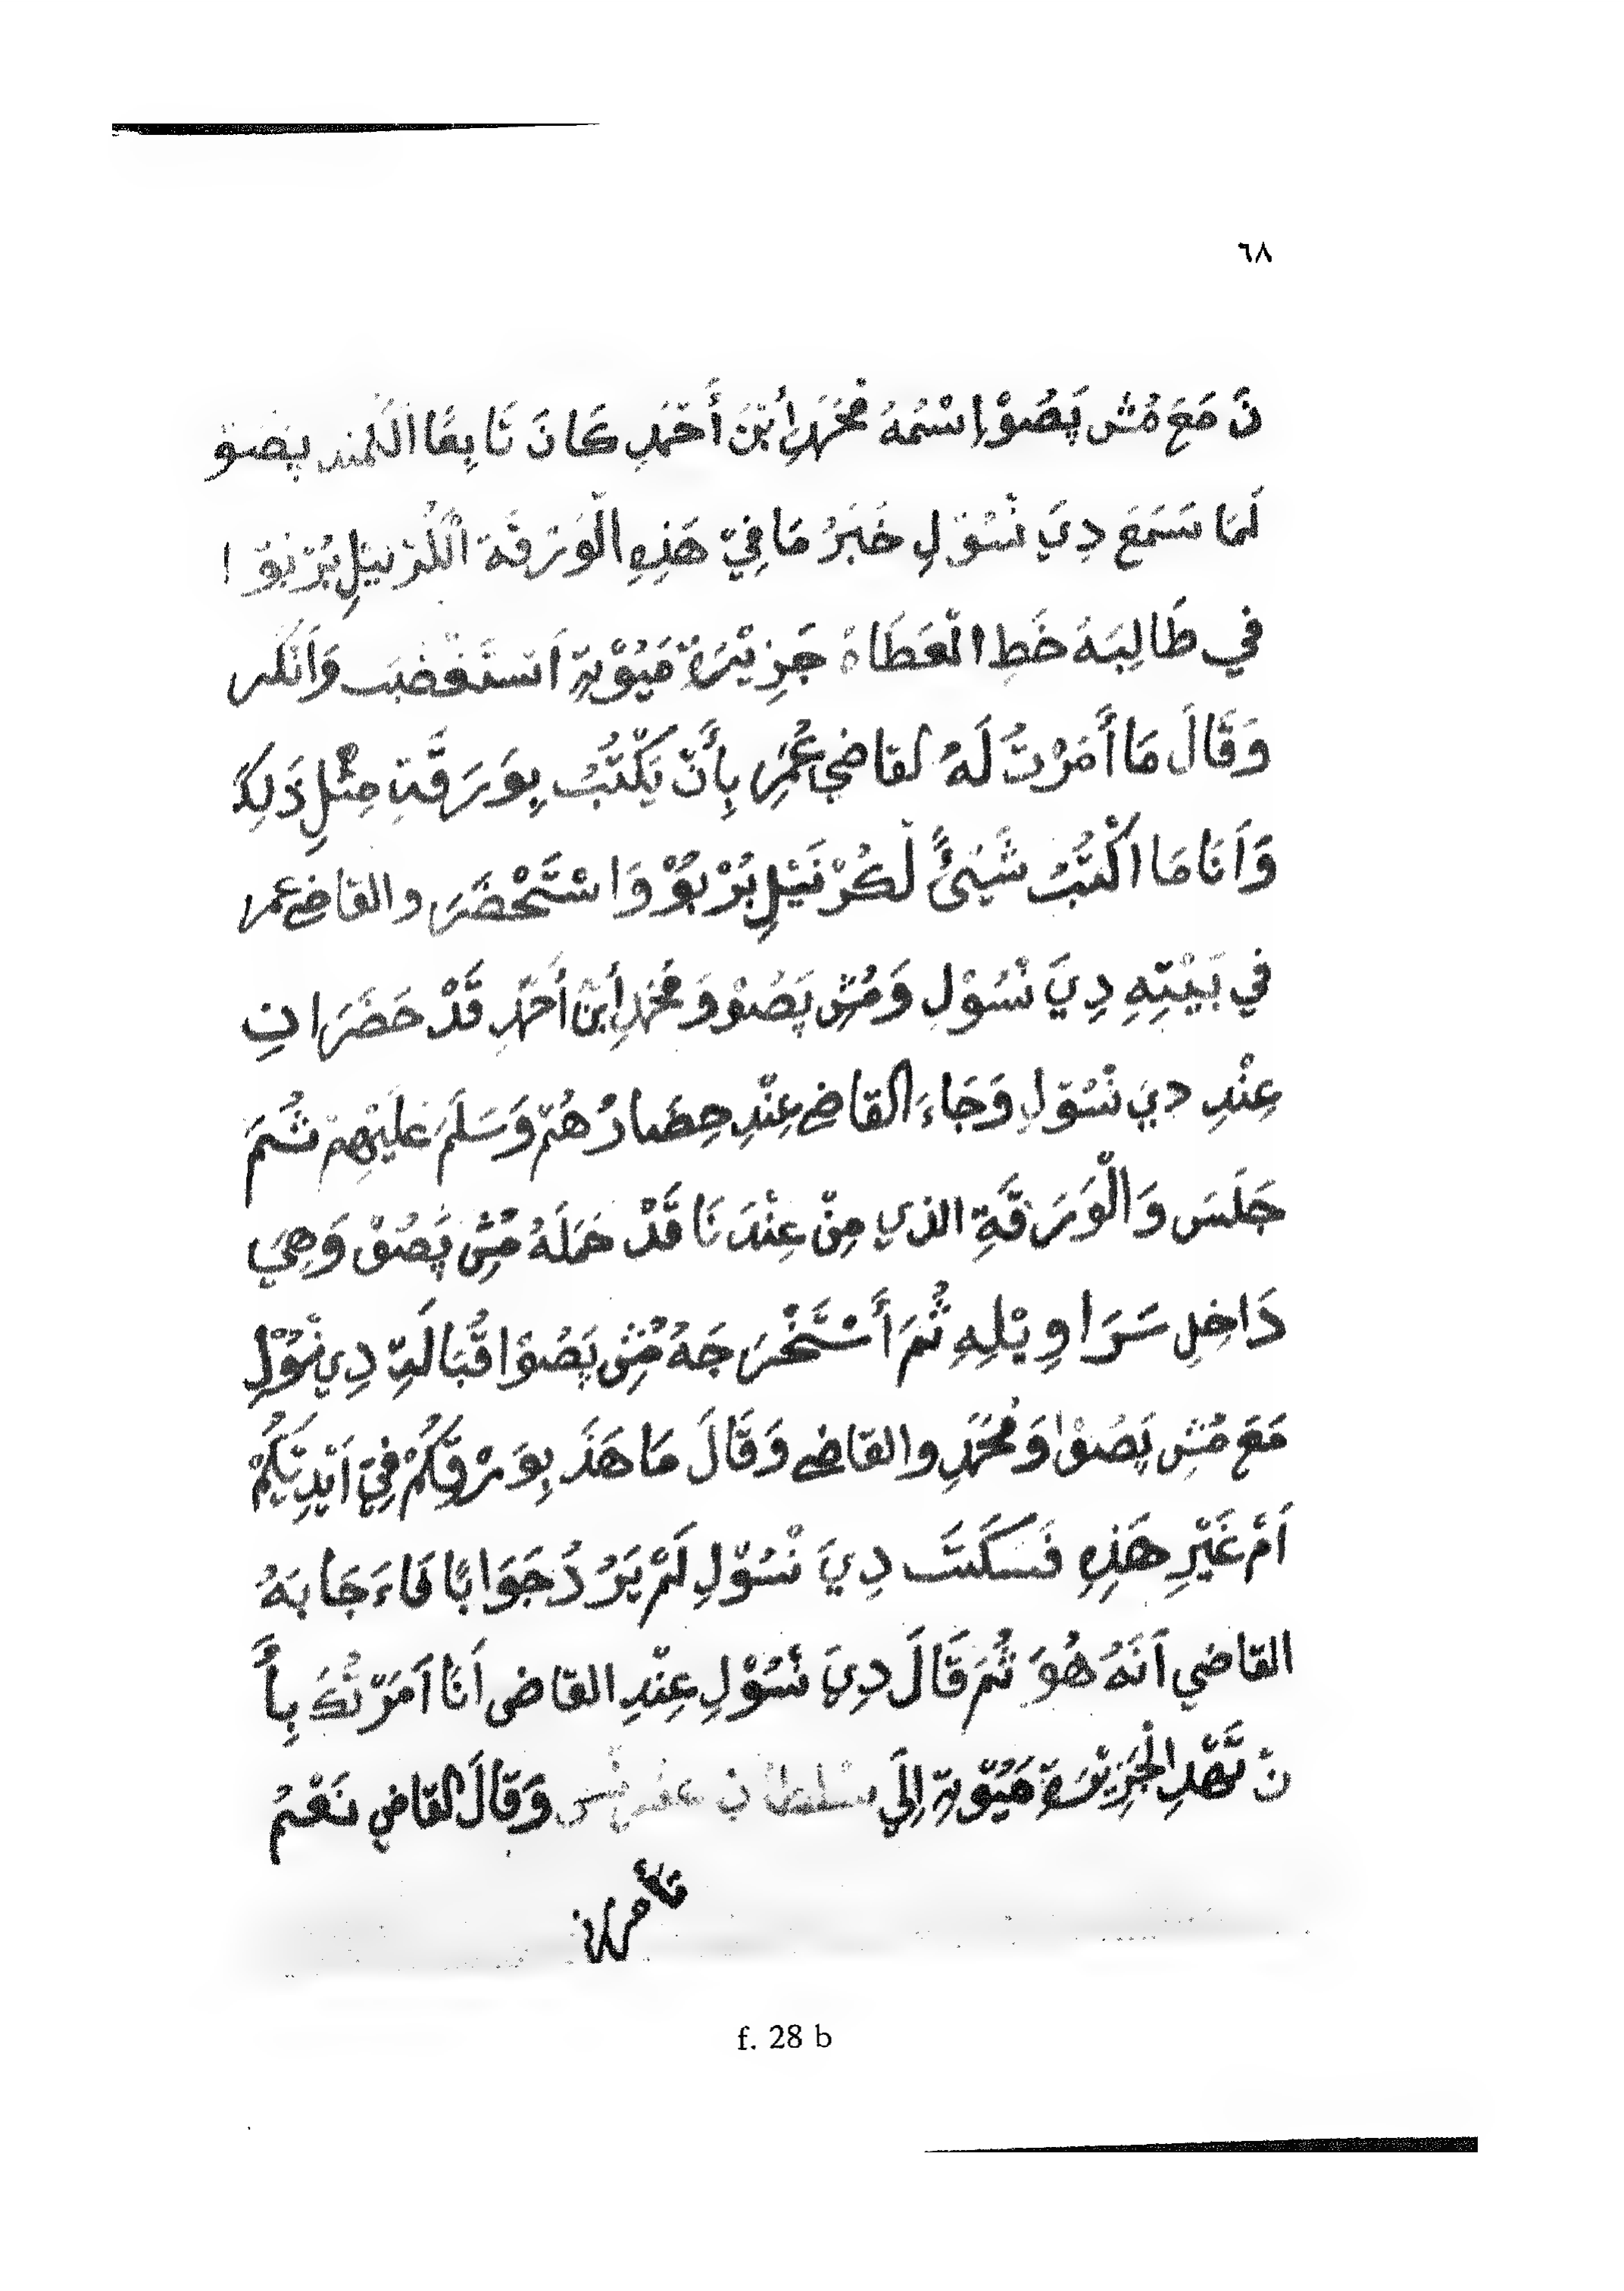 ٦٨
نَ مَعَ مُشِ پَصُوْ اِسْمُهُ مُحَمَّدِ اِبْنَ أَحْمَدِ كَانَ تَابِعًا الْكُمَنْدِ پَصُوْ
لَمَا سَمَعَ دِيَ نْسُوْلِ خَبَرُ مَا فِيْ هَذِهِ الْوَرْقَةَ الْكُرْنِيْلِ بُرْبُوْ ا
في طَالِبَةَ خَطِ الْعَطَاهْ جَزِيْرَةِ مَيُوْتِةِ اَسْتَغْضَبَ وَاَنْكَر
وَقَالَ مَا أَمَرْتُ لَهُ لقاضي عُمَرِ بِأَنْ يَكْتُبُ بِوَرَقَةِ مِثْلِ ذَلِكَ
وَاَنَا مَا اكْتُبُ شَيْئً لَكُرْنَيْلِ بُرْبُوْ وَاسْتَحْضَرَ والقاضي عمر
في بَيْتِهِ دِيَ نْسُوْلِ وَمُشِ پَصُوْ وَمُحَمَّدِ اِبْنَ أَحْمَدِ قَدْ حَضَرَانِ
عِنْدِ دِيَ نْسُوْلِ وَجَاءَ القاضي عِنْدِ حِضَارُهُمْ وَسَلَمَ عَلَيْهِمْ ثُمَ
جَلَسَ وَالْوَرَقَةِ الذي مِنْ عِنْدَنَا قَدْ حَمَلَهُ مُشِ پَصُوْ وَهِيَ
دَاخِلِ سَرَاوِيْلِهِ ثُمَ أَسْتَخْرَجَهُ مُشِ پَصُوْا قُبَالَةِ دِي نْسُوْلِ
مَعَ مُشِ پَصُوْا وَمُحَمَّدِ والقاضي وَقَالَ مَا هَذَ بِوَرْقِكُمْ فِيْ اَيْدِيْكُمْ
اَمْ غَيْرِ هَذِهِ فَسَكَتَ دِيَ نْسُوْلِ لَمْ يَرُدُ جَوَابًا فَاءَجَابَهُ
القاضي اَنَهُ هُوَ ثُمَ قَالَ دِيَ نْسُوْلِ عِنْدِ القاضي اَنَا اَمَرْتُكَ بِأَ
نَ تَهْدِ الْجَزِيْرَةِ مَيُوْتِةِ اِلَي سُلْطَانِ وَقَالَ القاضي نَعَمْ
f. 28 b